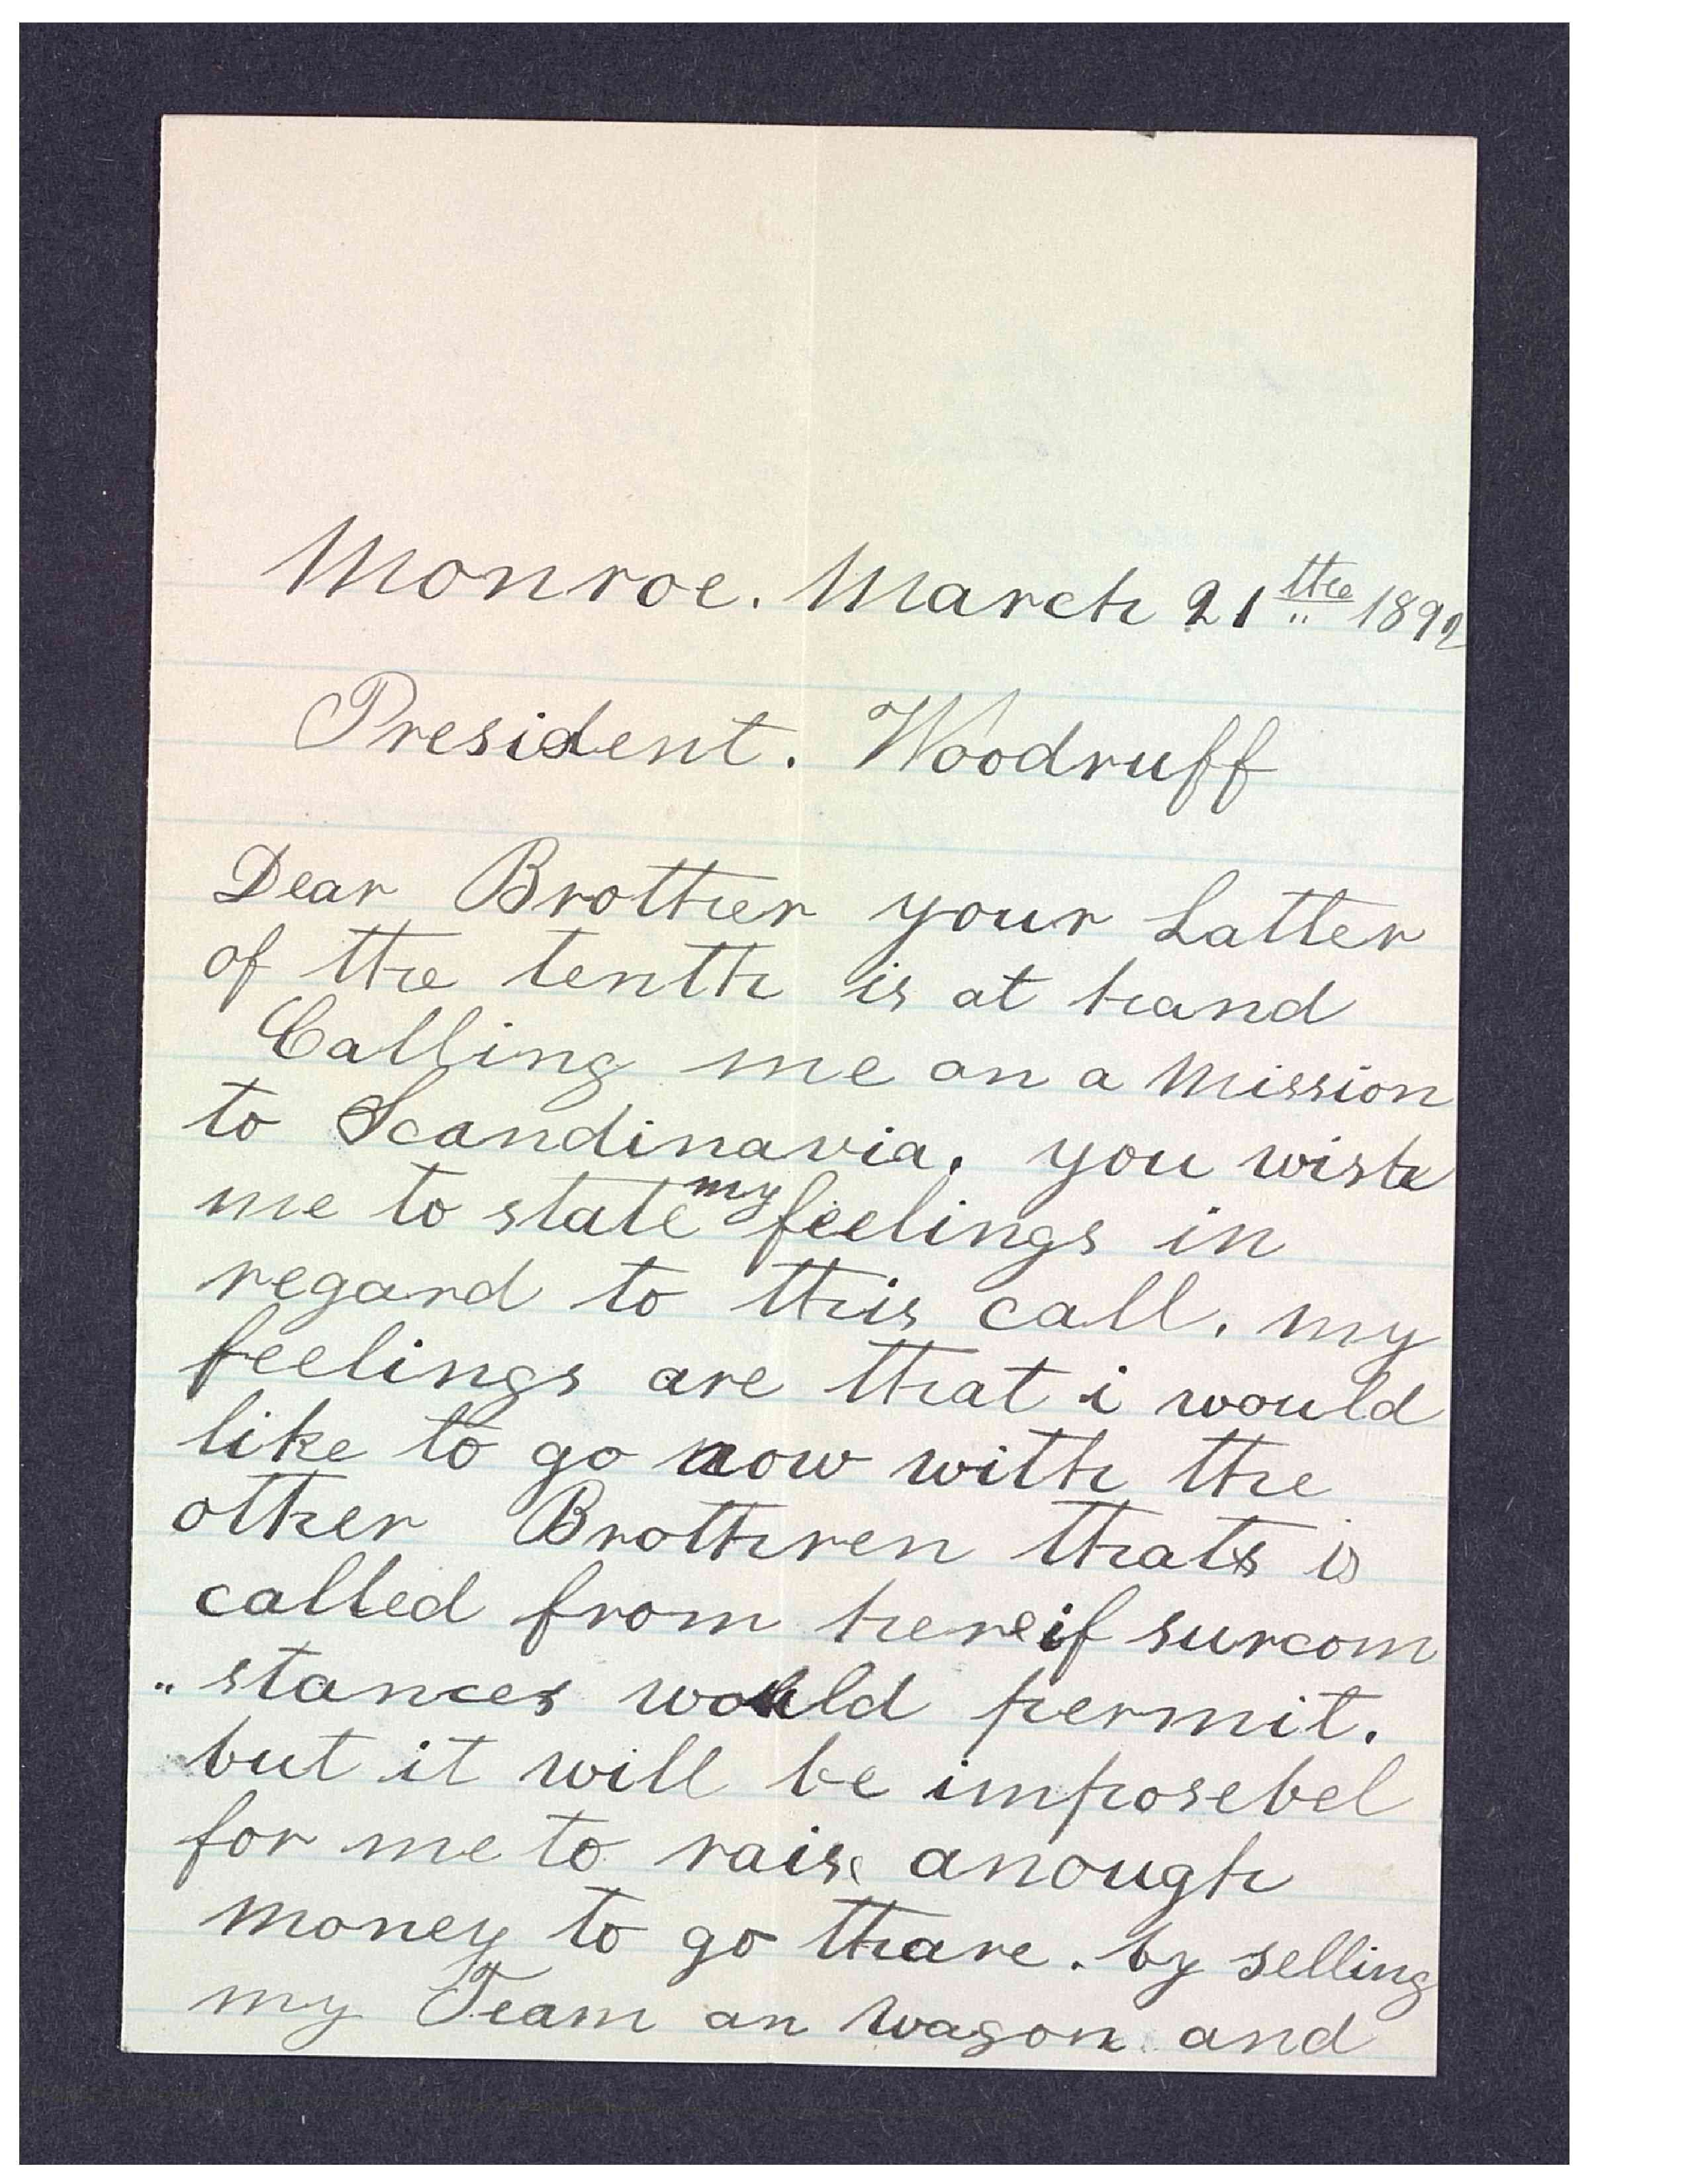 Monroe. March 21the 1892
President. Woodruff
Dear Brother your Latter
of the tenth is at hand
Calling me on a Mission
to Scandinavia. you wish
me to state my feelings in
regard to this call. my
feelings are that i would
like to go now with the
other Brothren thats is
called from here if surcom
"stances would permit.
but it will be imposebel
for me to raise anough
money to go thare. by selling
my Team an wagon and